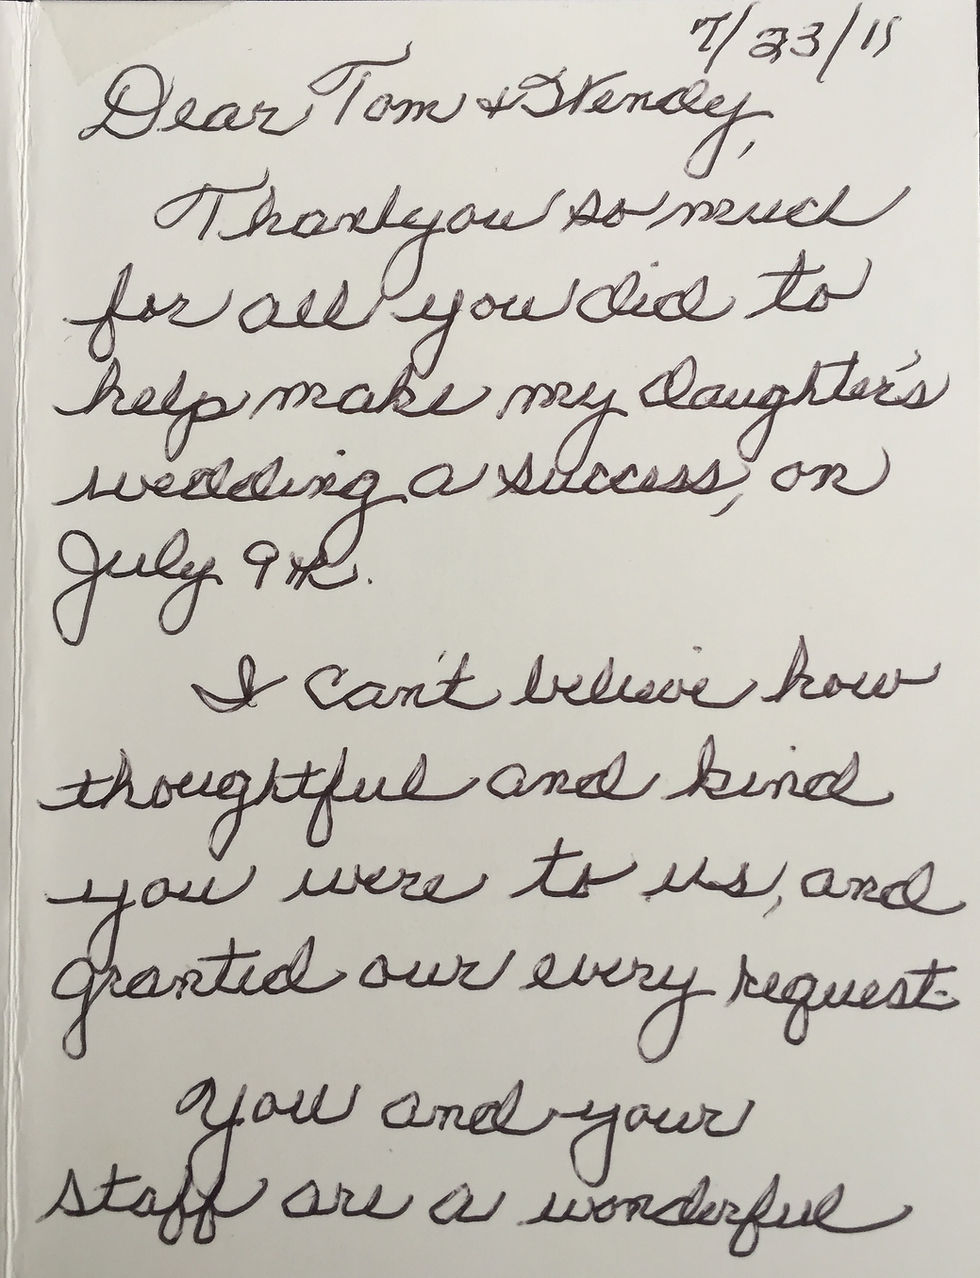 7/23/11
Dear Tom & Wendy,
Thank you so much
for all you did to
help make my daughter's
wedding a success, on
July 9th.
I can't believe how
thoughtful and kind
you were to us, and
granted our every request.
You and your
staff are a wonderful